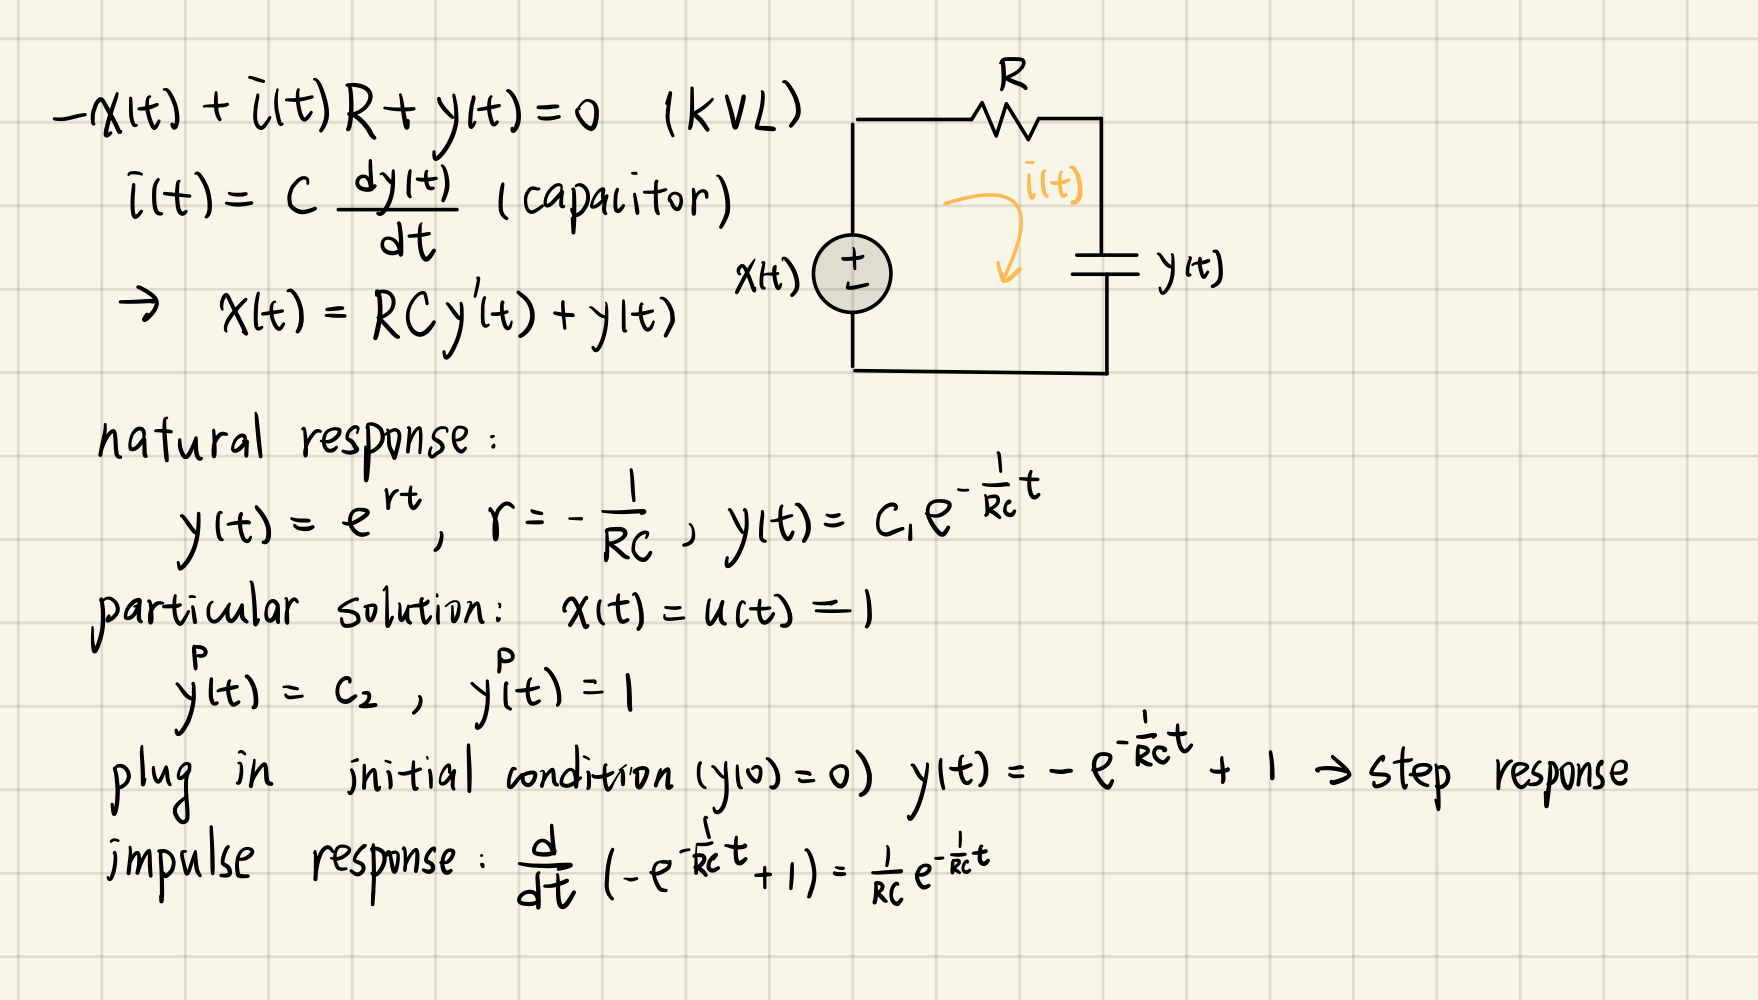 -x(t) + i(t)R + y(t) = 0 (KVL)
i(t) = C dy(t)/dt (capacitor)
→ x(t) = RCy'(t) + y(t)
R
i(t)
x(t)
+
-
y(t)
natural response:
y(t) = e^{rt}, r = -1/RC, y(t) = C₁e^{-1/RC t}
particular solution: x(t) = u(t) = 1
y^p(t) = C₂, y^p(t) = 1
plug in initial condition (y(0) = 0) y(t) = -e^{-1/RC t} + 1 → step response
impulse response: d/dt (-e^{-1/RC t} + 1) = 1/RC e^{-1/RC t}